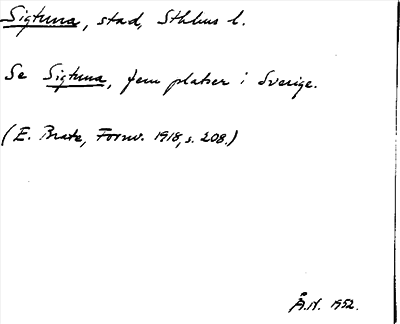 Sigtuna, stad, Sthlms l.
Se Sigtuna, fem platser i Sverige.
(E. Brate, Fornv. 1918, s. 208.)
Å.N. 1952.